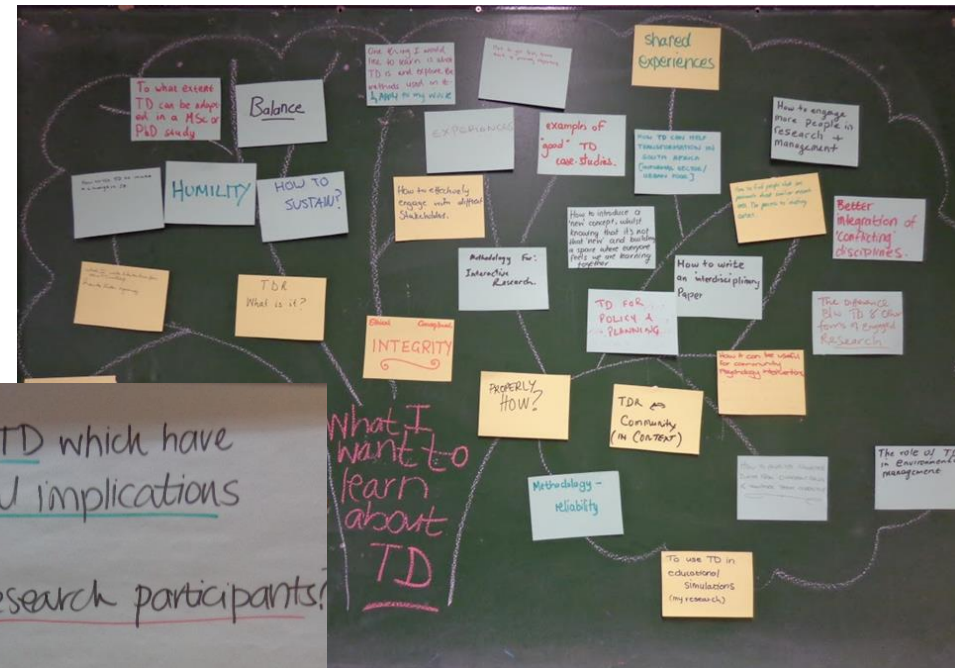 To what extent
TD can be adopt-
ed in a MSc or
PhD study
Balance
One thing I would
like to learn is what
TD is and explore the
methods used in it
& Apply to my work
shared
experiences
How to engage
more people in
research +
management
EXPERIANCES
examples of
"good" TD
case-studies.
HOW TD CAN HELP
TRANSFORMATION IN
SOUTH AFRICA
HUMILITY
HOW TO
SUSTAIN?
How to effectively
engage with different
Stakeholders.
How to introduce a
'new' concept, whilst
knowing that it's not
that 'new' and building
a space where everyone
feels we are learning
together
Better
integration of
'conflicting'
disciplines.
TDR
What is it?
Methodology For:
Interactive
Research.
How to write
an interdisciplinary
Paper
Ethical Conceptual
INTEGRITY
TD FOR
POLICY &
PLANNING
The difference
B/w TD & other
forms of engaged
Research
How it can be useful
for community
Psychology
PROPERLY
HOW?
TDR ⇔
Community
(IN CONTEXT)
What I
want to
learn
about
TD
Methodology -
reliability
The role of TD
in environment
management
To use TD in
educational
Simulations
(my research)
TD which have
U implications
esearch participants?